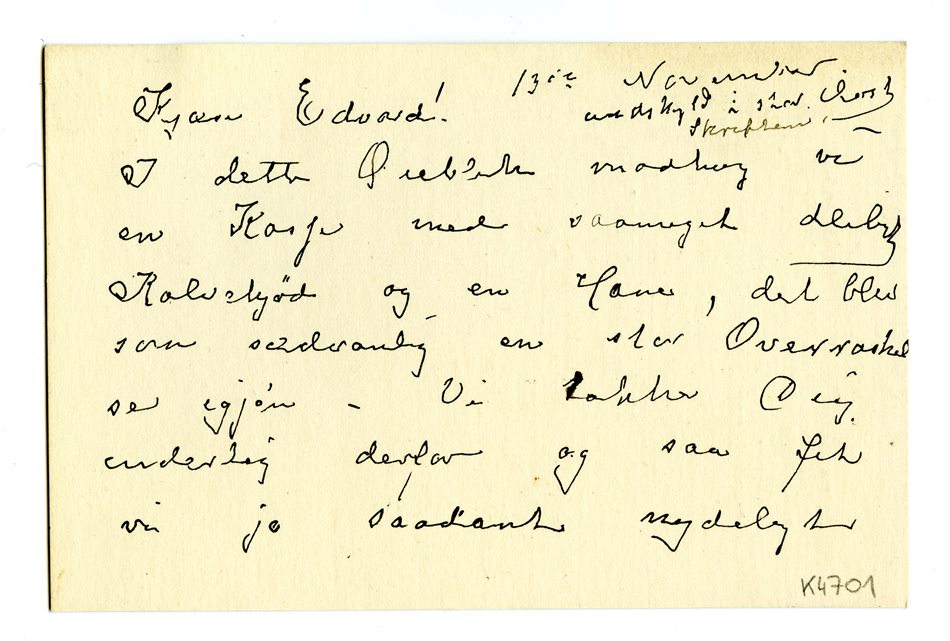 13de November.
Kjære Edvard! undskyld i stor Hast
Skriften
I dette Øieblik modtog vi
en Kasse med saameget deilig
Kalvekjød og en Hane, det blev
som sædvanlig en stor Overraskel
se igjen – Vi takke Dig
inderlig derfor og saa fik
vi jo saadant nydeligt
K4701